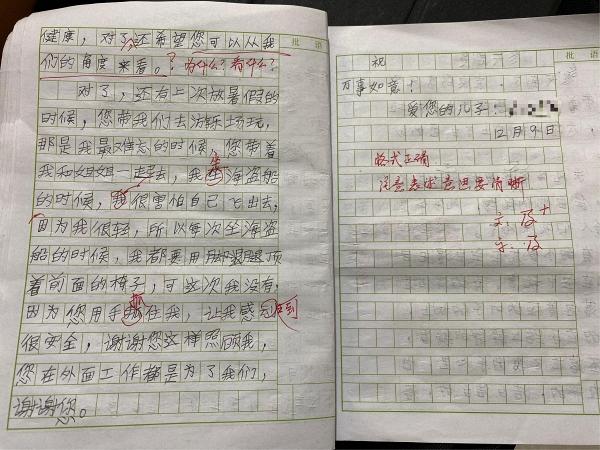 健康，对了，还希望您可以从我
们的角度来看。？为什么？看什么？
对了，还有上次放暑假的
时候，您带我们去游乐场玩，
那是我最难忘的时候，您带着
我和姐姐一起去，我坐海盗船
的时候，我很害怕自己飞出去，
因为我很轻，所以每次坐海盗
船的时候，我都要用脚腿顶
着前面的椅子，可这次我没有，
因为您用手抓住我，让我感到
很安全，谢谢您这样照顾我，
您在外面工作都是为了我们，
谢谢您。
批语
祝
万事如意！
爱您的儿子：
12月9日
格式正确
注意表述意思要清晰
文：及+
字：及
批语